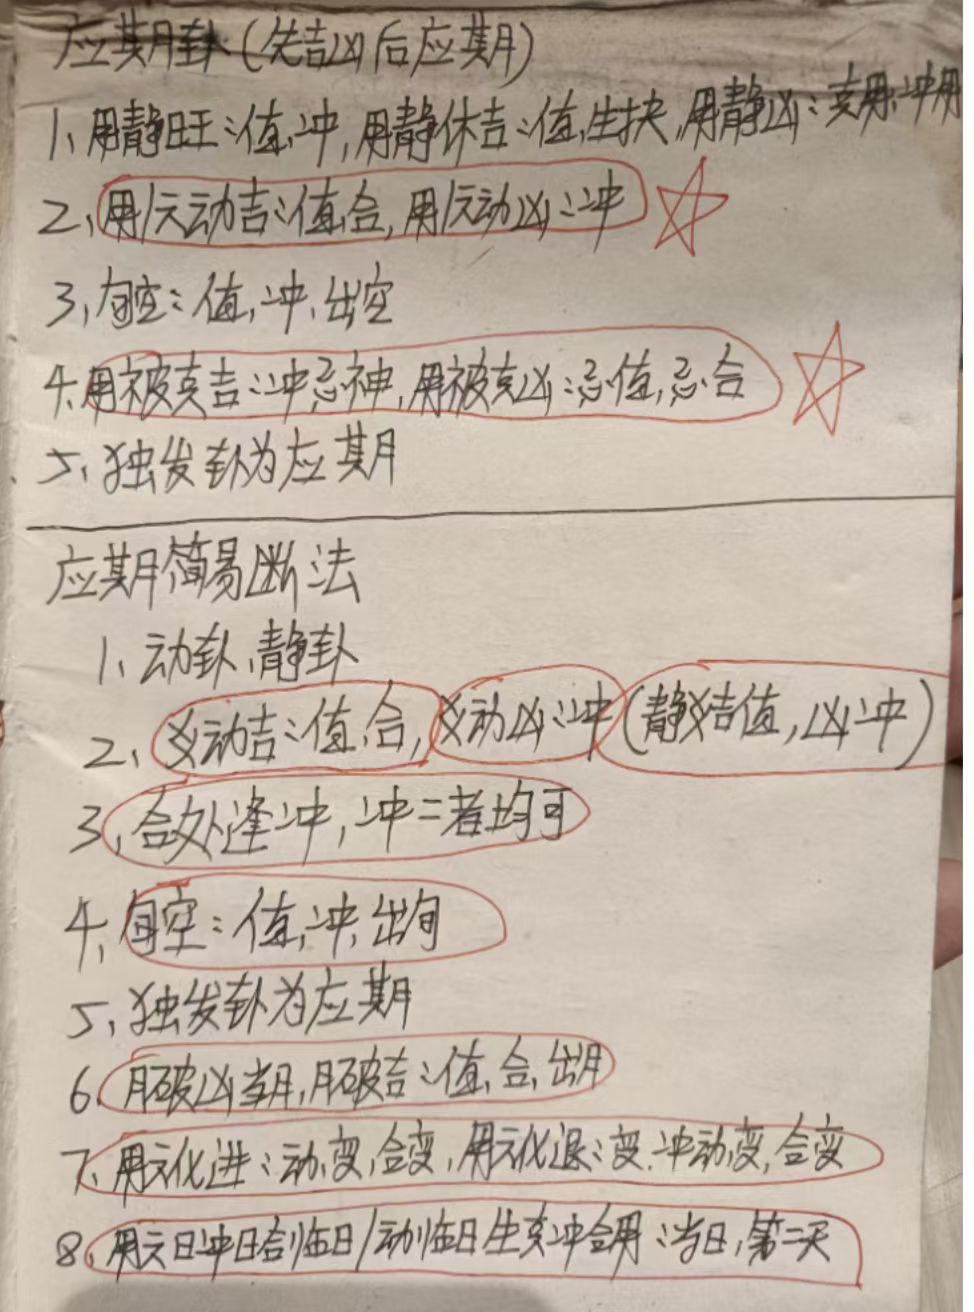 应期卦(先吉凶后应期)
1、用静旺:值,冲,用静休吉:值,生扶,用静凶:克用,冲用
2、用/元动吉:值,合,用/元动凶:冲
3、旬空:值,冲,出空
4、用被克吉:冲忌神,用被克凶:忌值,忌合
5、独发卦为应期
应期简易断法
1、动卦、静卦
2、爻动吉:值,合,爻动凶:冲(静爻吉值,凶冲)
3、合处逢冲,冲二者均可
4、旬空:值,冲,出旬
5、独发卦为应期
6、月破凶当月,月破吉:值,合,出月
7、用元化进:动,变,合变,用元化退:变,冲动变,合变
8、用元日冲日合临日/动临日生克冲合用:当日,第二天